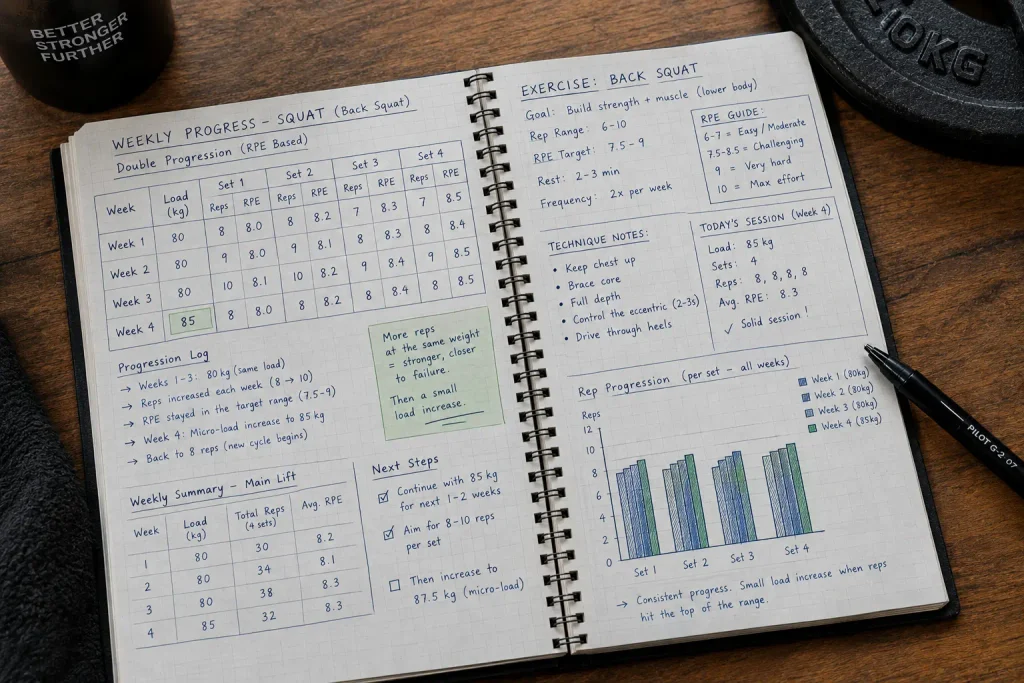 BETTER
STRONGER
FURTHER
10KG
WEEKLY PROGRESS – SQUAT (Back Squat)
Double Progression (RPE Based)
Week Load (kg) Set 1 Set 2 Set 3 Set 4
Reps RPE Reps RPE Reps RPE Reps RPE
Week 1 80 8 8.0 8 8.2 7 8.3 7 8.5
Week 2 80 9 8.0 9 8.1 8 8.3 8 8.4
Week 3 80 10 8.1 10 8.2 9 8.4 9 8.5
Week 4 85 8 8.0 8 8.2 8 8.4 8 8.5
Progression Log
→ Weeks 1-3: 80 kg (same load)
→ Reps increased each week (8 → 10)
→ RPE stayed in the target range (7.5-9)
→ Week 4: Micro-load increase to 85 kg
→ Back to 8 reps (new cycle begins)
More reps
at the same weight
= stronger, closer
to failure.
Then a small
load increase.
Weekly Summary – Main Lift
Week Load (kg) Total Reps (4 sets) Avg. RPE
1 80 30 8.2
2 80 34 8.1
3 80 38 8.3
4 85 32 8.3
Next Steps
☑ Continue with 85 kg
for next 1-2 weeks
☑ Aim for 8-10 reps
per set
☐ Then increase to
87.5 kg (micro-load)
EXERCISE: BACK SQUAT
Goal: Build strength + muscle (lower body)
Rep Range: 6-10
RPE Target: 7.5-9
Rest: 2-3 min
Frequency: 2x per week
RPE GUIDE:
6-7 = Easy / Moderate
7.5-8.5 = Challenging
9 = Very hard
10 = Max effort
TECHNIQUE NOTES:
• Keep chest up
• Brace core
• Full depth
• Control the eccentric (2-3s)
• Drive through heels
TODAY'S SESSION (Week 4)
Load: 85 kg
Sets: 4
Reps: 8, 8, 8, 8
Avg. RPE: 8.3
✓ Solid session!
Rep Progression (per set – all weeks)
Week 1 (80kg)
Week 2 (80kg)
Week 3 (80kg)
Week 4 (85kg)
Reps
12
10
8
6
4
2
0
Set 1 Set 2 Set 3 Set 4
→ Consistent progress. Small load increase when reps
hit the top of the range.
PILOT G-2 07